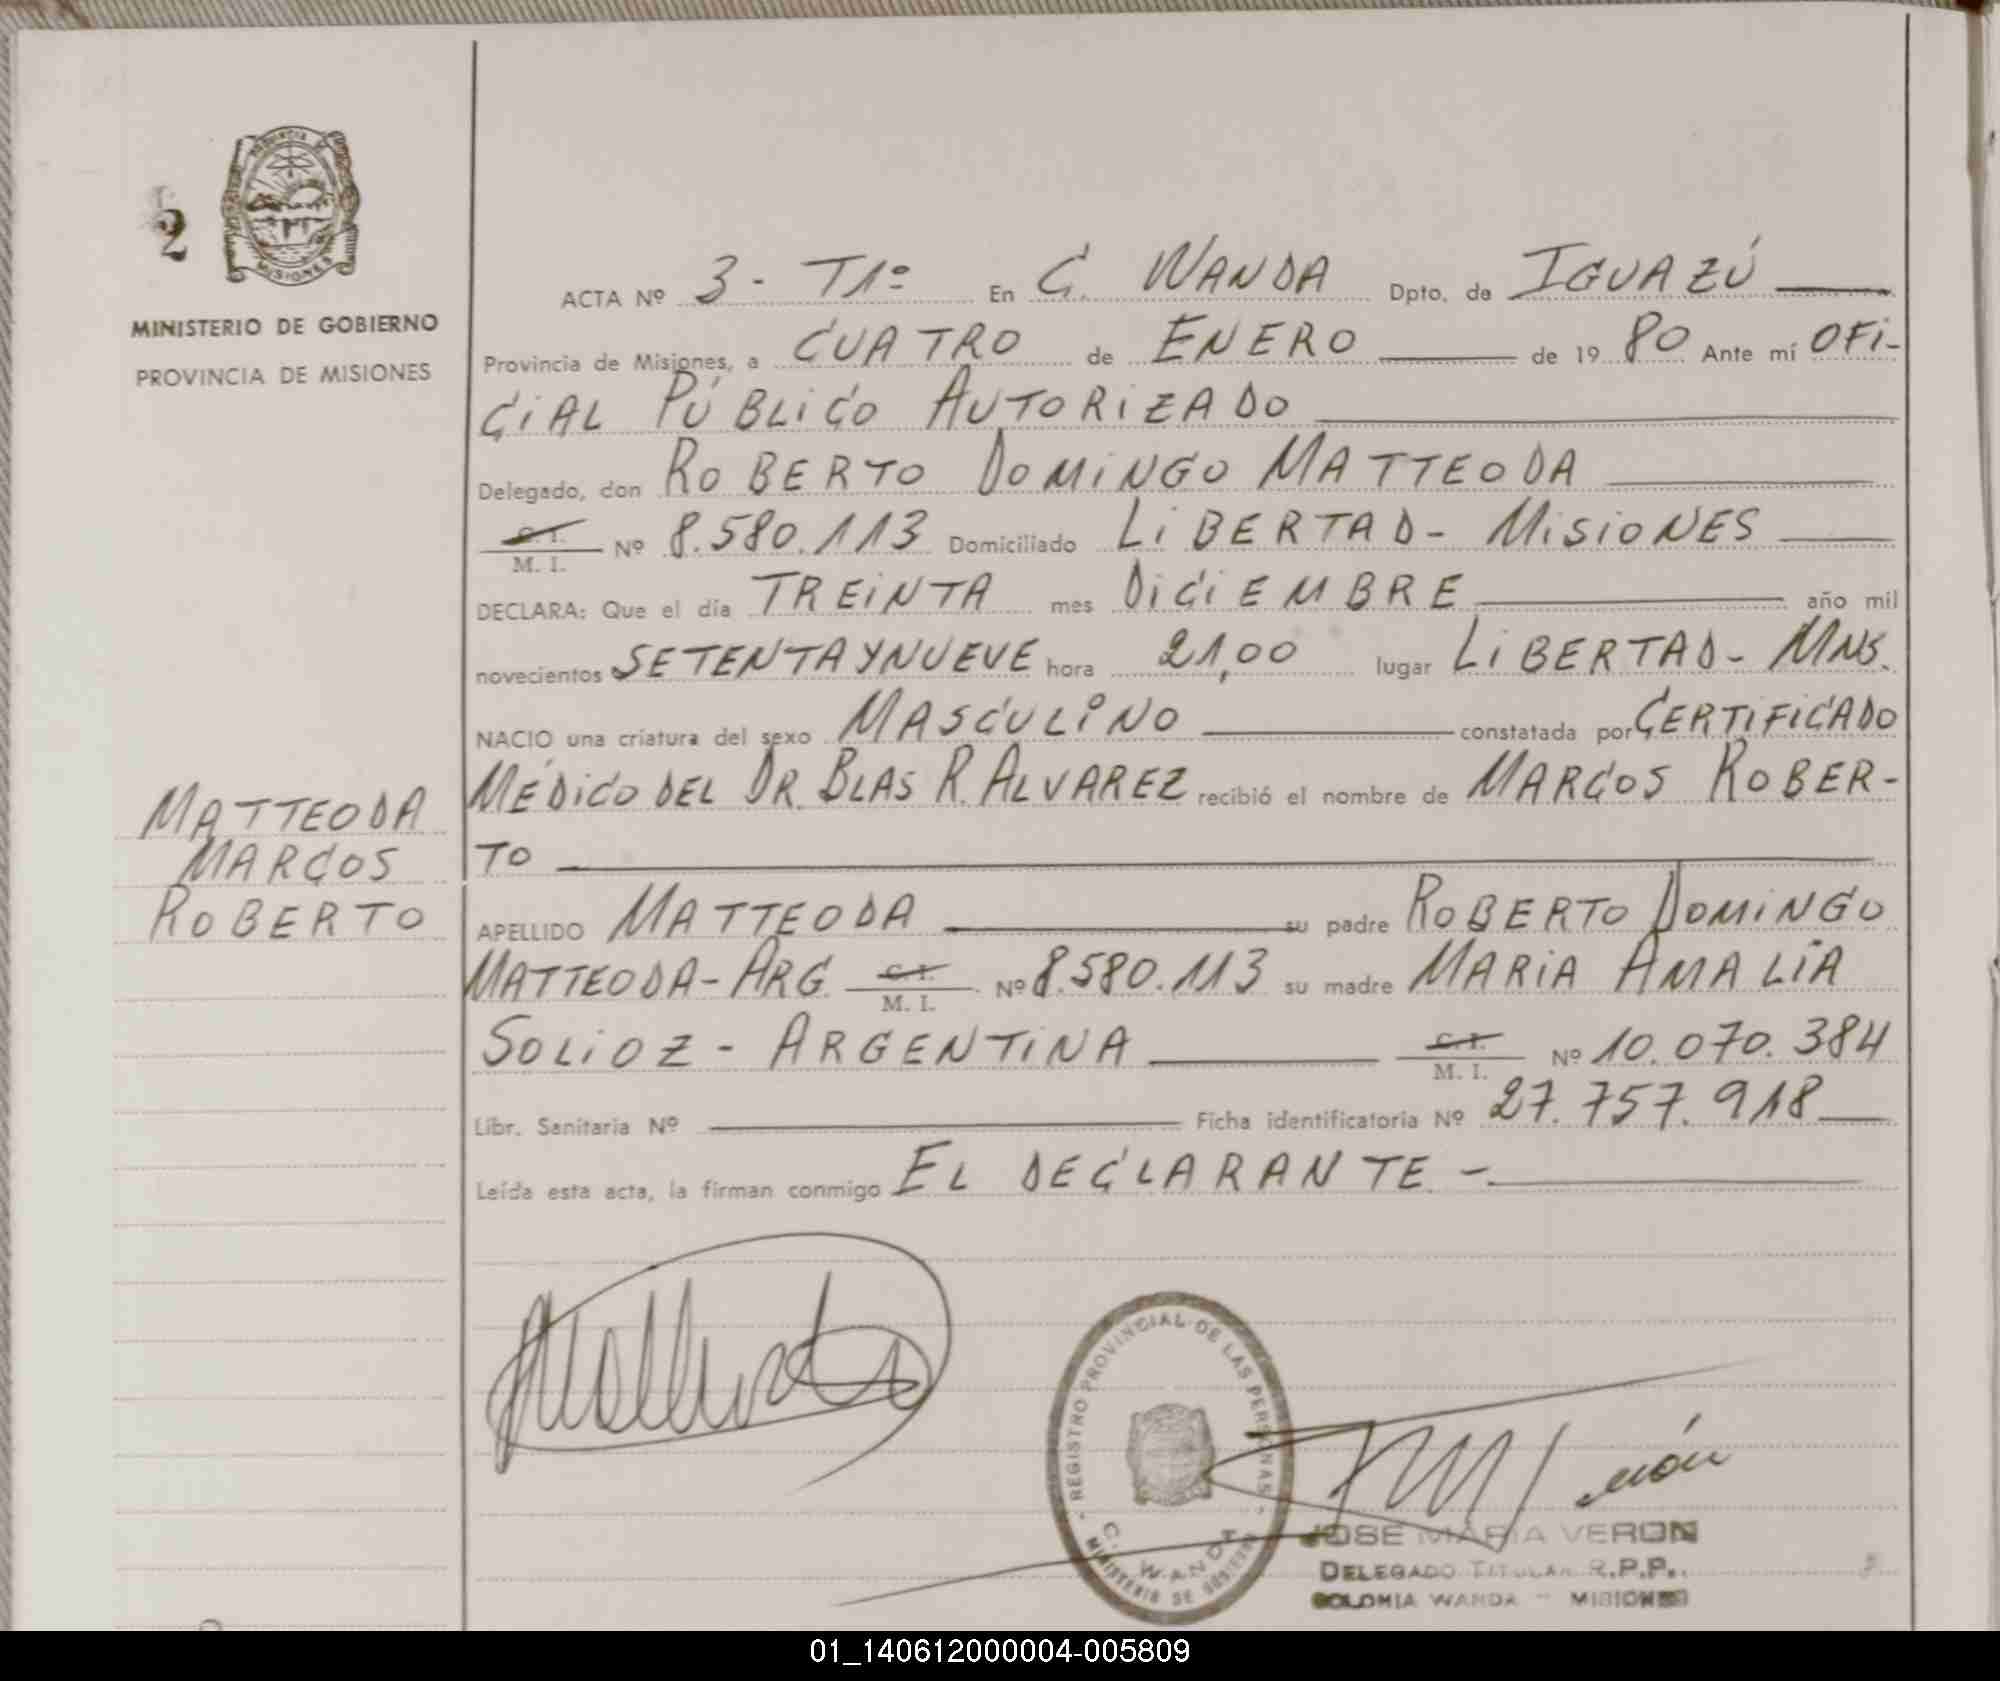 2
PROVINCIA
MISIONES
MINISTERIO DE GOBIERNO
PROVINCIA DE MISIONES
MATTEODA
MARCOS
ROBERTO
ACTA Nº 3 - T1º En C. WANDA Dpto. de IGUAZÚ
Provincia de Misiones, a CUATRO de ENERO de 1980 Ante mí OFI-
CIAL PÚBLICO AUTORIZADO
Delegado, don ROBERTO DOMINGO MATTEODA
C. I.
M. I. Nº 8.580.113 Domiciliado LIBERTAD - MISIONES
DECLARA: Que el día TREINTA mes DICIEMBRE año mil
novecientos SETENTA Y NUEVE hora 21,00 lugar LIBERTAD - MNS.
NACIO una criatura del sexo MASCULINO constatada por CERTIFICADO
MÉDICO DEL DR. BLAS R. ALVAREZ recibió el nombre de MARCOS ROBER-
TO
APELLIDO MATTEODA su padre ROBERTO DOMINGO
MATTEODA - ARG. C. I. M. I. Nº 8.580.113 su madre MARIA AMALIA
SOLIOZ - ARGENTINA C. I. M. I. Nº 10.070.384
Libr. Sanitaria Nº Ficha identificatoria Nº 27.757.918
Leída esta acta, la firman conmigo EL DECLARANTE -
REGISTRO PROVINCIAL DE LAS PERSONAS
C. WANDA
MINISTERIO DE GOBIERNO
JOSE MARIA VERON
DELEGADO TITULAR R.P.P.
COLONIA WANDA - MISIONES
01_140612000004-005809